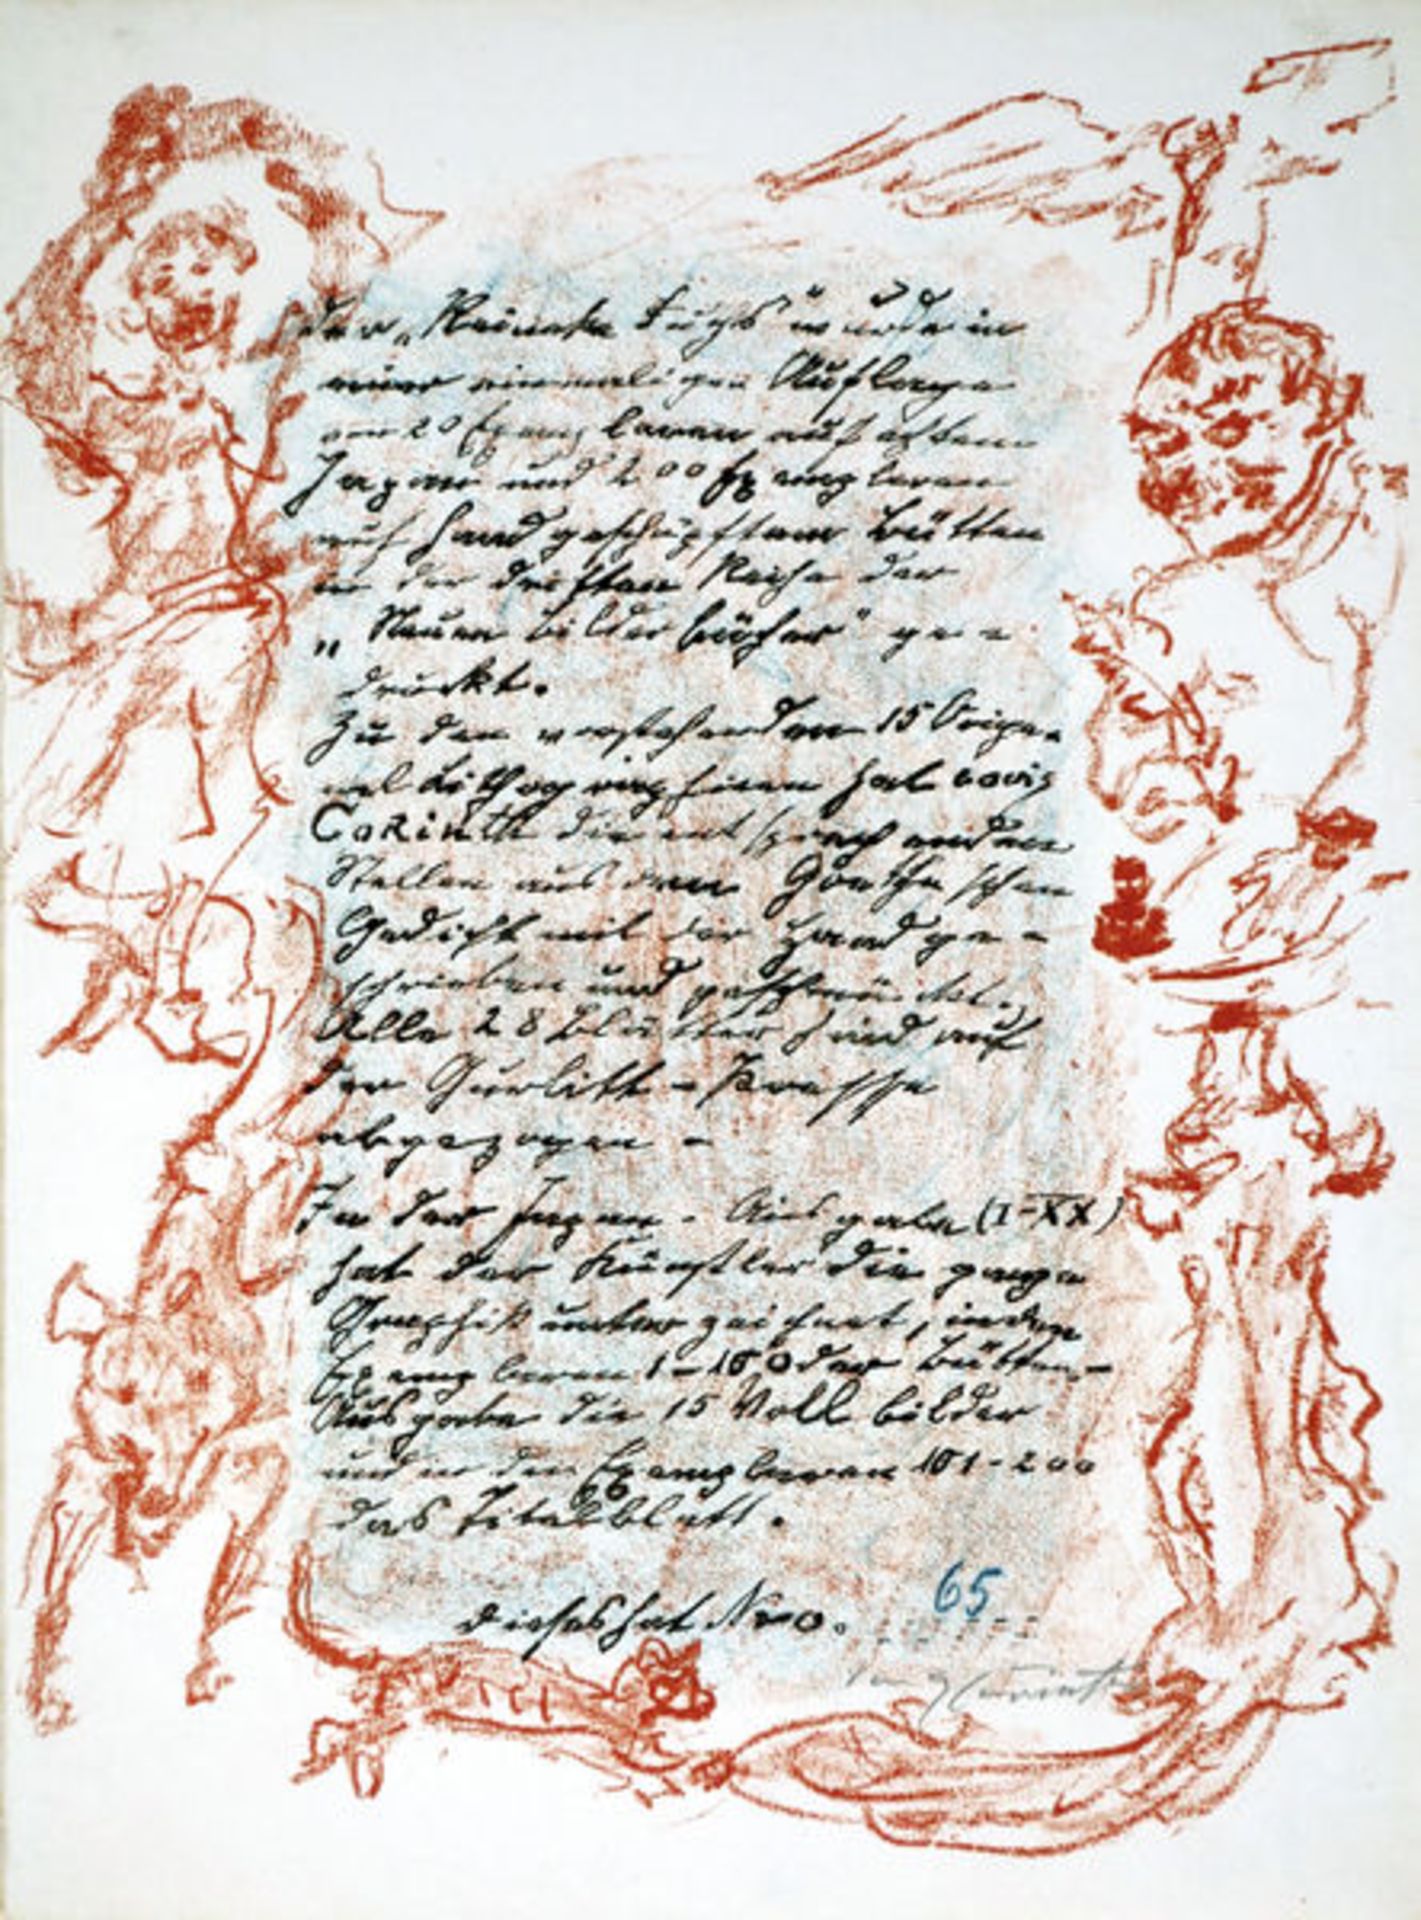 Der „Reineke Fuchs" wurde in
einer einmaligen Auflage
von 20 Exemplaren auf echtem
Japan und 200 Exemplaren
auf handgeschöpftem Bütten
in der dritten Reihe der
„Neuen Bilderbücher" ge-
druckt.
Zu den vorstehenden 15 Origi-
nal Lithographieen hat Lovis
CoRinth die entsprechenden
Stellen aus dem Goetheschen
Gedicht mit der Hand ge-
schrieben und geschmückt.
Alle 28 Blätter sind auf
der Gurlitt-Presse
abgezogen -
In der Japan-Ausgabe (I-XX)
hat der Künstler die ganze
Graphik unterzeichnet, in den
Exemplaren 1-100 der Bütten-
Ausgabe die 15 Vollbilder
und in den Exemplaren 101-200
das Titelblatt.
Dieses hat Nro. 65
Corinth